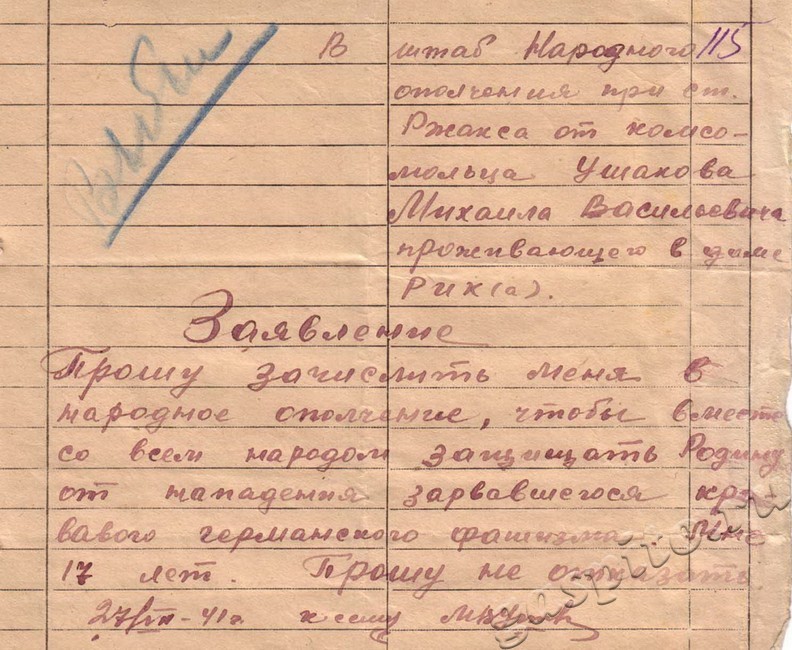 Выбыл
В штаб Народного 115
ополчения при ст.
Ржакса от комсо-
мольца Ушакова
Михаила Васильевича
проживающего в доме
РИК(а).
Заявление
Прошу зачислить меня в
народное ополчение, чтобы вместе
со всем народом защищать Родину
от нападения зарвавшегося кро-
вавого германского фашизма. Мне
17 лет. Прошу не отказать
27/VII-41г. к сему